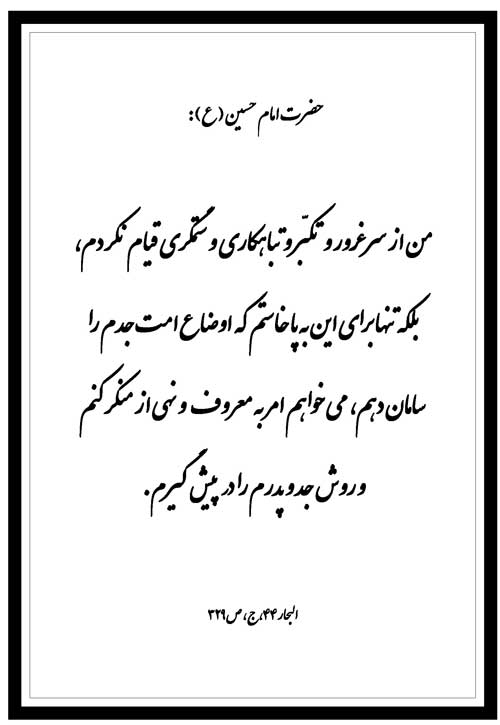 حضرت امام حسین (ع):
من از سر غرور و تکبّر و تباهکاری و ستمگری قیام نکردم،
بلکه تنها برای این به پا خاستم که اوضاع امت جدم را
سامان دهم، می خواهم امر به معروف و نهی از منکر کنم
و روش جد و پدرم را در پیش گیرم.
البحار ۴۴، ج، ص ۳۲۹